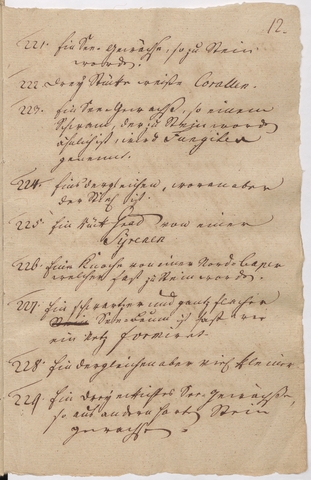 12.
221. Ein See-Gewächs, so zu Stein
worden.
222 Dreÿ Stücke weiße Corallen.
223. Ein See-Gewächs, so einem
Schwam, der zu Stein worden
ähnlich ist, wird Fungites
genennt.
224. Eins dergleichen, woran aber
der Stiel ist.
225. Ein Stück von einer
Syrenen
226. Eine Knoche von einer
welcher fast zu Stein worden.
227. Ein schwartzer und gantz flacher
See-Baum ist fast wie
ein Netz formirt.
228. Ein dergleichen aber viel kleiner.
229. Ein Dreÿ See-Gewächse,
so aus andern hart Stein
gewachsen.